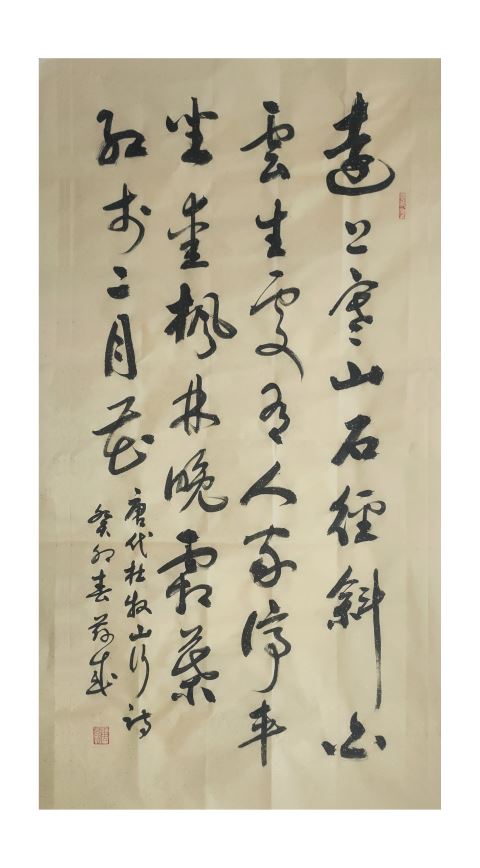 遠上寒山石徑斜白
雲生處有人家停車
坐愛楓林晚霜葉
紅於二月花
唐代杜牧山行詩
癸卯春